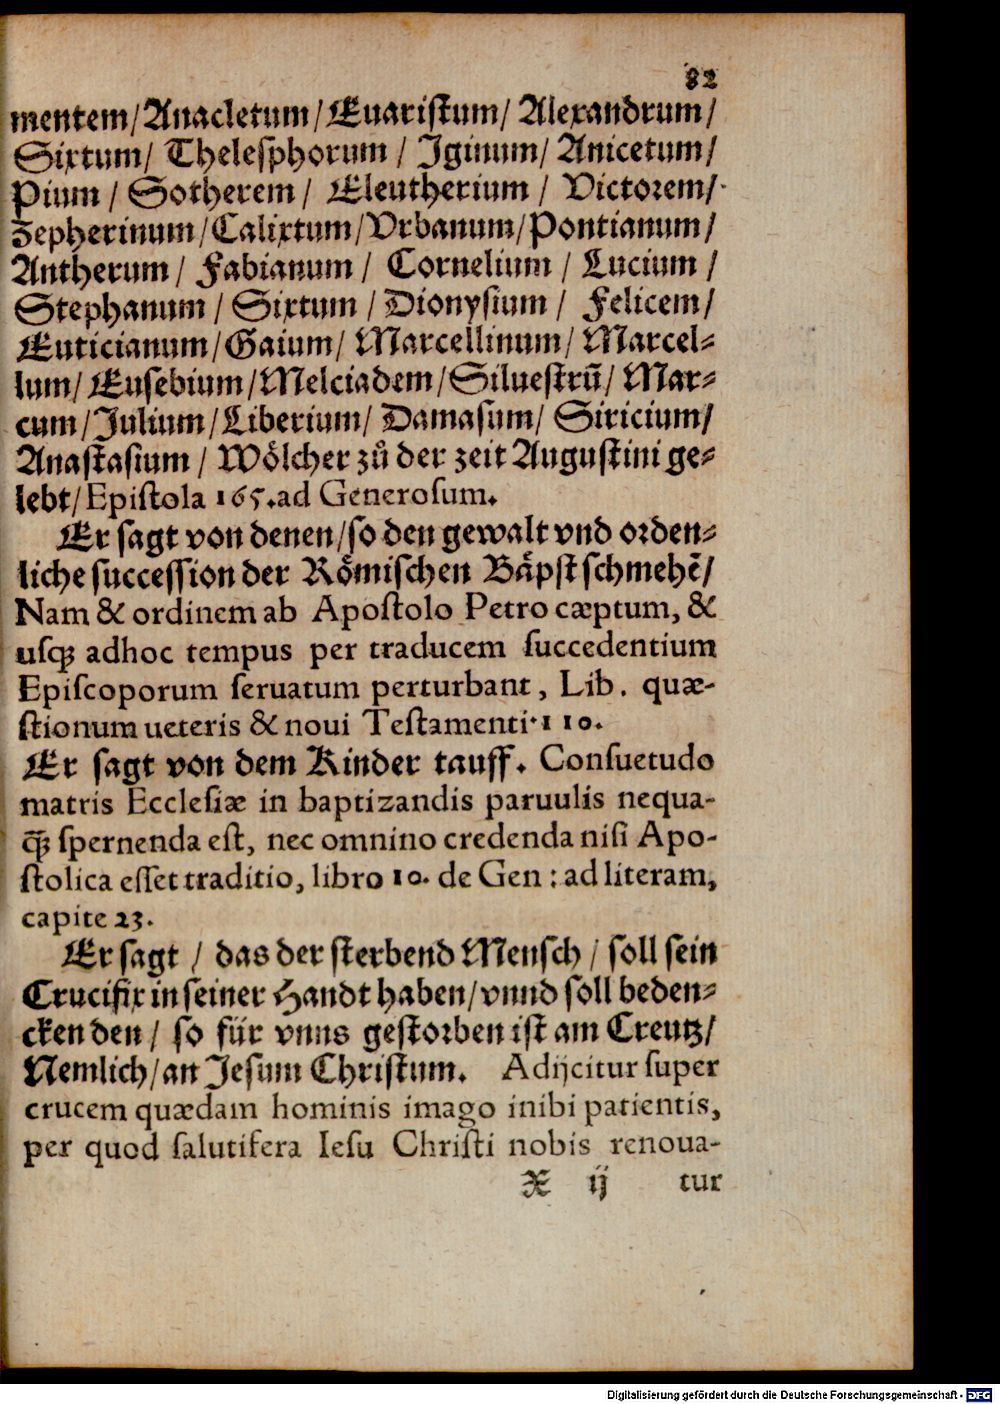 82
mentem/Anacletum/Euariſtum/ Alexandrum/
Sixtum/ Theleſphorum / Iginum/ Anicetum/
Pium / Sotherem / Eleutherium / Victorem/
Zepherinum/Calixtum/Vrbanum/Pontianum/
Antherum/ Fabianum / Cornelium / Lucium /
Stephanum / Sixtum / Dionyſium / Felicem/
Euticianum/Gaium/ Marcellinum/ Marcel⸗
lum/ Euſebium/Melciadem/Silueſtrũ/ Mar⸗
cum/Julium/Liberium/ Damaſum/ Siricium/
Anaſtaſium / Woͤlcher zuͦ der zeit Auguſtini ge⸗
lebt/Epiſtola 165.ad Generoſum.
Er ſagt von denen/ſo den gewalt vnd orden⸗
liche ſucceſſion der Roͤmiſchen Baͤpſt ſchmehẽ/
Nam & ordinem ab Apoſtolo Petro cæptum, &
uſq́ꝫ adhoc tempus per traducem ſuccedentium
Epiſcoporum ſeruatum perturbant, Lib. quæ-
ſtionum ueteris & noui Teſtamenti·110.
Er ſagt von dem Kinder tauff. Conſuetudo
matris Eccleſiæ in baptizandis paruulis nequa-
q̃ꝫ ſpernenda eſt, nec omnino credenda niſi Apo-
ſtolica eſſet traditio, libro 10. de Gen: ad literam,
capite 23.
Er ſagt / das der ſterbend Menſch / ſoll ſein
Crucifix in ſeiner Handt haben/vnnd ſoll beden⸗
cken den / ſo für vnns geſtorben iſt am Creutz/
Nemlich/an Jeſum Chriſtum. Adijcitur ſuper
crucem quædam hominis imago inibi patientis,
per quod ſalutifera Ieſu Chriſti nobis renoua-
X ij tur
Digitalisierung gefördert durch die Deutsche Forschungsgemeinschaft - DFG